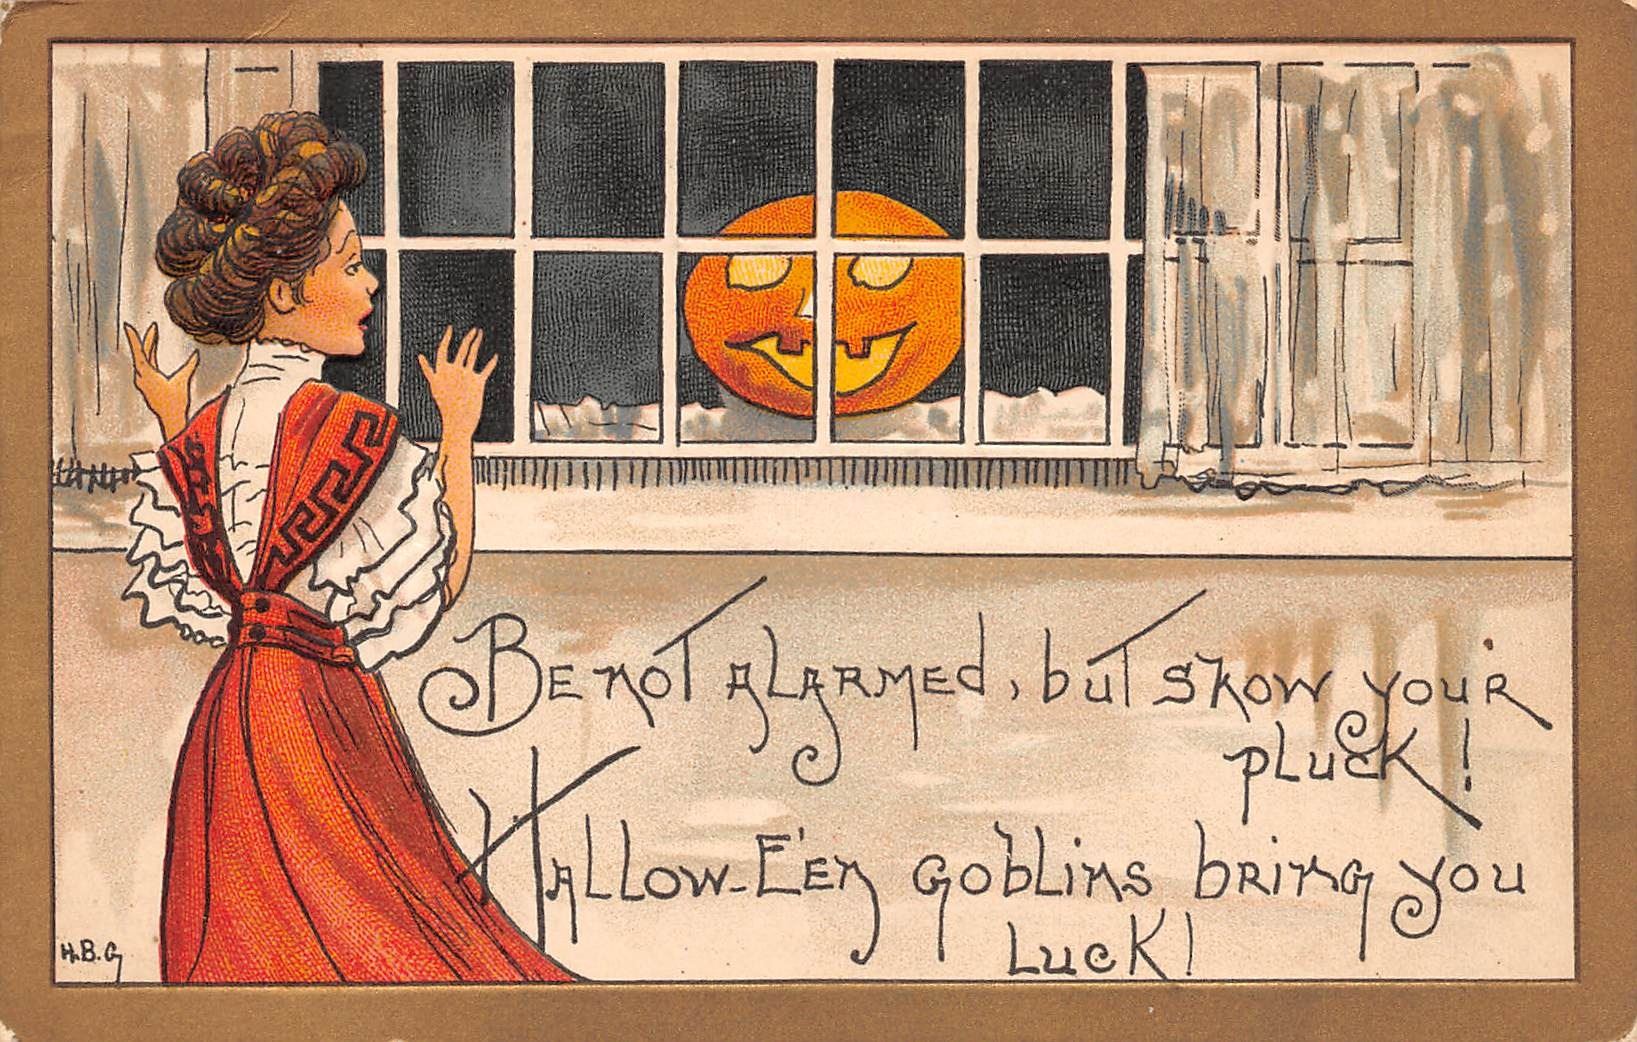 Be not alarmed, but show your
pluck!
Hallow-E'en goblins bring you
luck!
H.B.G